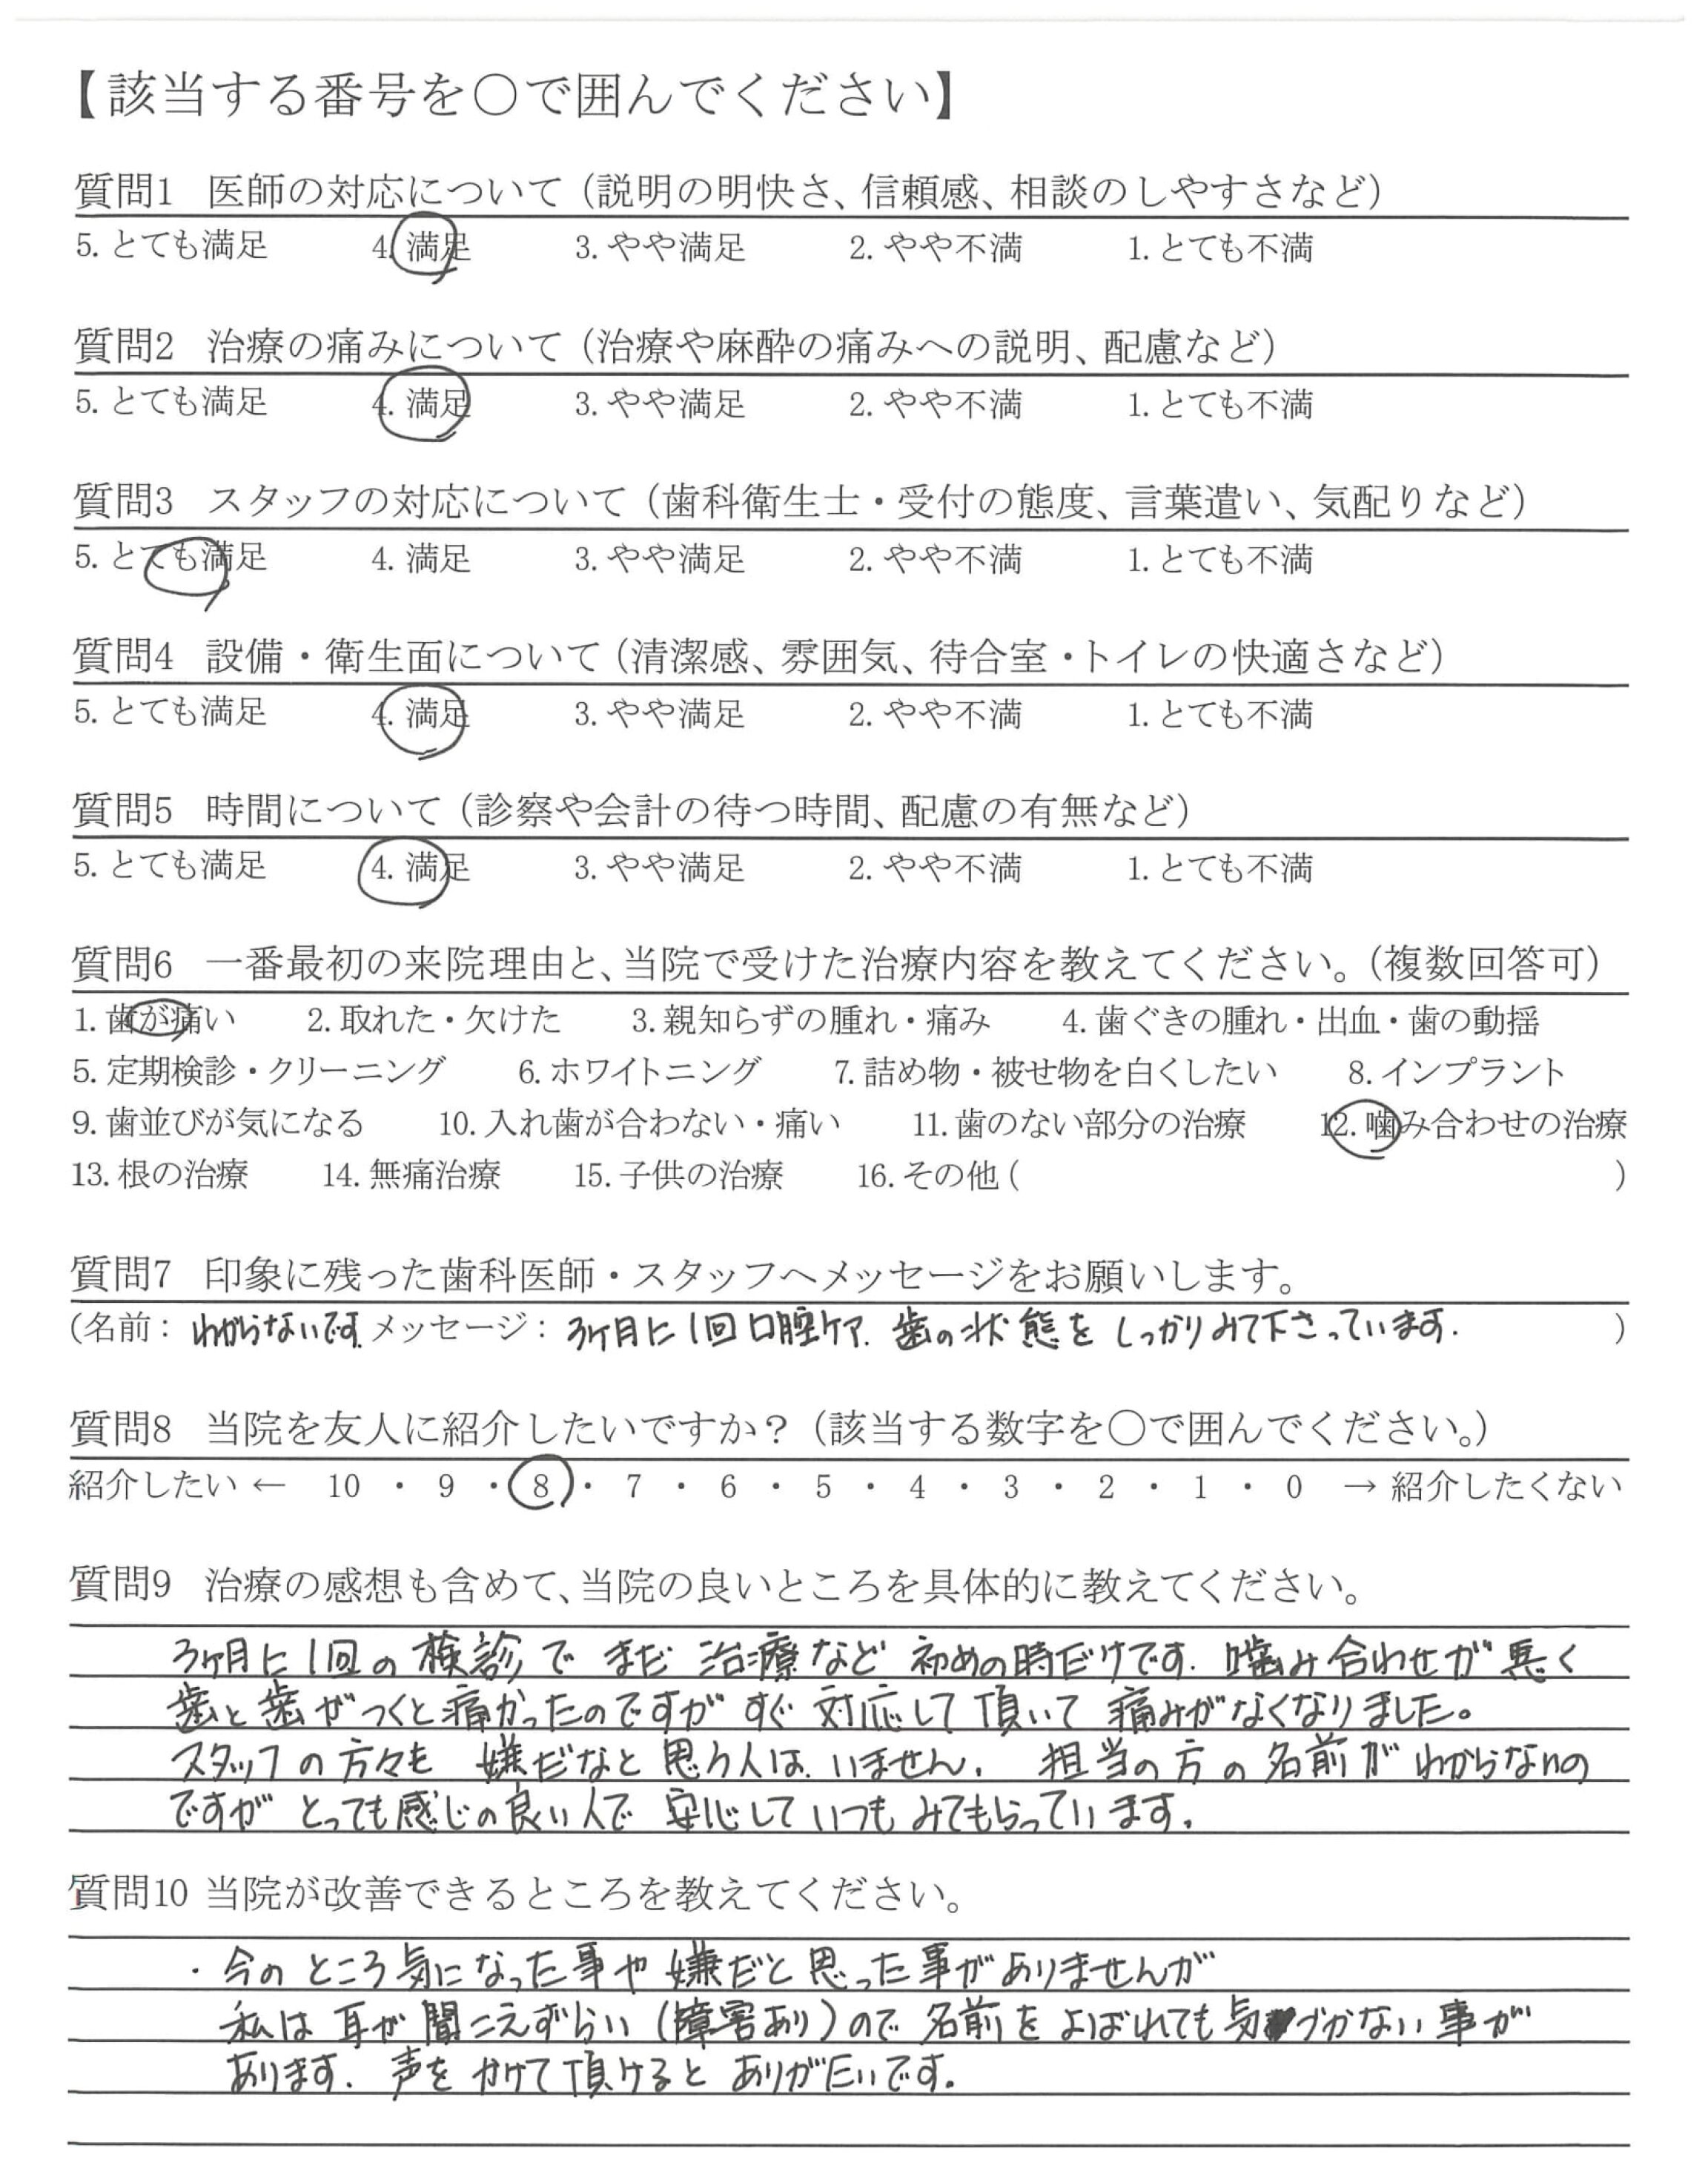 【該当する番号を○で囲んでください】
質問1 医師の対応について（説明の明快さ、信頼感、相談のしやすさなど）
5. とても満足 4. 満足 3. やや満足 2. やや不満 1. とても不満
質問2 治療の痛みについて（治療や麻酔の痛みへの説明、配慮など）
5. とても満足 4. 満足 3. やや満足 2. やや不満 1. とても不満
質問3 スタッフの対応について（歯科衛生士・受付の態度、言葉遣い、気配りなど）
5. とても満足 4. 満足 3. やや満足 2. やや不満 1. とても不満
質問4 設備・衛生面について（清潔感、雰囲気、待合室・トイレの快適さなど）
5. とても満足 4. 満足 3. やや満足 2. やや不満 1. とても不満
質問5 時間について（診察や会計の待つ時間、配慮の有無など）
5. とても満足 4. 満足 3. やや満足 2. やや不満 1. とても不満
質問6 一番最初の来院理由と、当院で受けた治療内容を教えてください。（複数回答可）
1. 歯が痛い 2. 取れた・欠けた 3. 親知らずの腫れ・痛み 4. 歯ぐきの腫れ・出血・歯の動揺
5. 定期検診・クリーニング 6. ホワイトニング 7. 詰め物・被せ物を白くしたい 8. インプラント
9. 歯並びが気になる 10. 入れ歯が合わない・痛い 11. 歯のない部分の治療 12. 噛み合わせの治療
13. 根の治療 14. 無痛治療 15. 子供の治療 16. その他（ ）
質問7 印象に残った歯科医師・スタッフへメッセージをお願いします。
（名前： わからないです. メッセージ： 3ヶ月に1回口腔ケア. 歯の状態を しっかりみて下さっています. ）
質問8 当院を友人に紹介したいですか？（該当する数字を○で囲んでください。）
紹介したい ← 10 ・ 9 ・ 8 ・ 7 ・ 6 ・ 5 ・ 4 ・ 3 ・ 2 ・ 1 ・ 0 → 紹介したくない
質問9 治療の感想も含めて、当院の良いところを具体的に教えてください。
3ヶ月に1回の検診で まだ 治療など 初めの時だけです. 噛み合わせが悪く
歯と歯がつくと痛かったのですが すぐ対応して頂いて 痛みがなくなりました。
スタッフの方々も 嫌だなと思う人は いません. 担当の方の名前がわからないの
ですが とっても感じの良い人で 安心していつもみてもらっています.
質問10 当院が改善できるところを教えてください。
・今のところ気になった事や嫌だと思った事がありませんが
私は耳が聞こえずらい（障害あり）ので名前をよばれても気づかない事が
あります. 声をかけて頂けるとありがたいです.